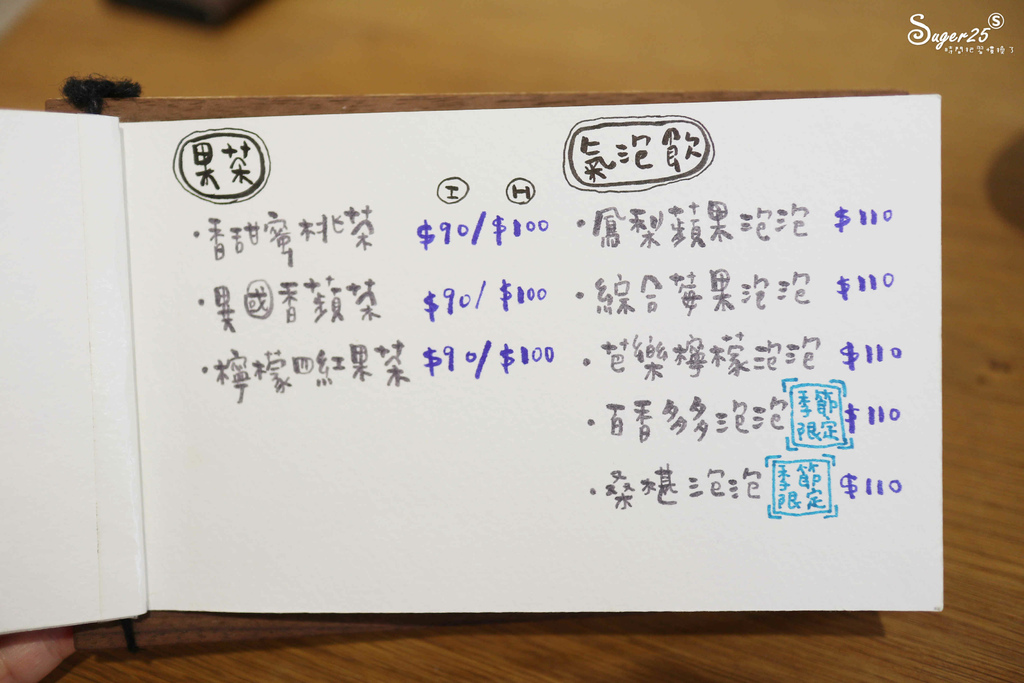 Suger25 S
時間把習慣換了
果茶
I H
·香甜蜜桃茶 $90/$100
·異國香蘋茶 $90/$100
·檸檬四紅果茶 $90/$100
氣泡飲
·鳳梨蘋果泡泡 $110
·綜合莓果泡泡 $110
·芭樂檸檬泡泡 $110
·百香多多泡泡 季節限定 $110
·桑椹泡泡 季節限定 $110